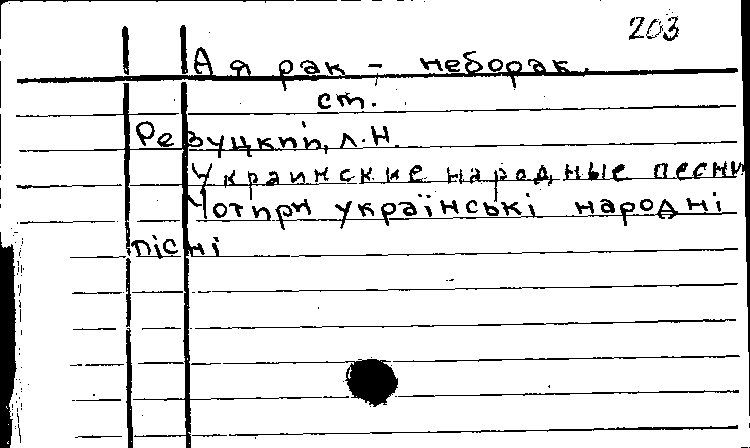 203
А я рак - неборак.
ст.
Ревуцкий, Л.Н.
Украинские народные песни
Чотири українські народні
пісні